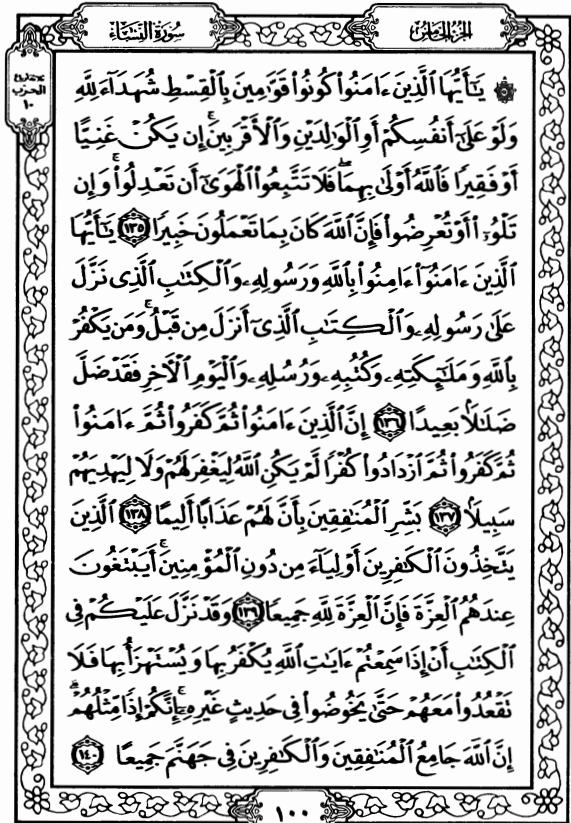 سُورَةُ النِّسَاءِ
الجُزْءُ الخَامِسُ
ثلاثة أرباع
الحزب
١٠
۞ يَٰٓأَيُّهَا ٱلَّذِينَ ءَامَنُوا۟ كُونُوا۟ قَوَّٰمِينَ بِٱلْقِسْطِ شُهَدَآءَ لِلَّهِ
وَلَوْ عَلَىٰٓ أَنفُسِكُمْ أَوِ ٱلْوَٰلِدَيْنِ وَٱلْأَقْرَبِينَ ۚ إِن يَكُنْ غَنِيًّا
أَوْ فَقِيرًا فَٱللَّهُ أَوْلَىٰ بِهِمَا ۖ فَلَا تَتَّبِعُوا۟ ٱلْهَوَىٰٓ أَن تَعْدِلُوا۟ ۚ وَإِن
تَلْوُۥٓا۟ أَوْ تُعْرِضُوا۟ فَإِنَّ ٱللَّهَ كَانَ بِمَا تَعْمَلُونَ خَبِيرًا ١٣٥ يَٰٓأَيُّهَا
ٱلَّذِينَ ءَامَنُوٓا۟ ءَامِنُوا۟ بِٱللَّهِ وَرَسُولِهِۦ وَٱلْكِتَٰبِ ٱلَّذِى نَزَّلَ
عَلَىٰ رَسُولِهِۦ وَٱلْكِتَٰبِ ٱلَّذِىٓ أَنزَلَ مِن قَبْلُ ۚ وَمَن يَكْفُرْ
بِٱللَّهِ وَمَلَٰٓئِكَتِهِۦ وَكُتُبِهِۦ وَرُسُلِهِۦ وَٱلْيَوْمِ ٱلْـَٔاخِرِ فَقَدْ ضَلَّ
ضَلَٰلًۢا بَعِيدًا ١٣٦ إِنَّ ٱلَّذِينَ ءَامَنُوا۟ ثُمَّ كَفَرُوا۟ ثُمَّ ءَامَنُوا۟
ثُمَّ كَفَرُوا۟ ثُمَّ ٱزْدَادُوا۟ كُفْرًا لَّمْ يَكُنِ ٱللَّهُ لِيَغْفِرَ لَهُمْ وَلَا لِيَهْدِيَهُمْ
سَبِيلًۢا ١٣٧ بَشِّرِ ٱلْمُنَٰفِقِينَ بِأَنَّ لَهُمْ عَذَابًا أَلِيمًا ١٣٨ ٱلَّذِينَ
يَتَّخِذُونَ ٱلْكَٰفِرِينَ أَوْلِيَآءَ مِن دُونِ ٱلْمُؤْمِنِينَ ۚ أَيَبْتَغُونَ
عِندَهُمُ ٱلْعِزَّةَ فَإِنَّ ٱلْعِزَّةَ لِلَّهِ جَمِيعًا ١٣٩ وَقَدْ نَزَّلَ عَلَيْكُمْ فِى
ٱلْكِتَٰبِ أَنْ إِذَا سَمِعْتُمْ ءَايَٰتِ ٱللَّهِ يُكْفَرُ بِهَا وَيُسْتَهْزَأُ بِهَا فَلَا
تَقْعُدُوا۟ مَعَهُمْ حَتَّىٰ يَخُوضُوا۟ فِى حَدِيثٍ غَيْرِهِۦٓ ۚ إِنَّكُمْ إِذًا مِّثْلُهُمْ ۗ
إِنَّ ٱللَّهَ جَامِعُ ٱلْمُنَٰفِقِينَ وَٱلْكَٰفِرِينَ فِى جَهَنَّمَ جَمِيعًا ١٤٠
١٠٠